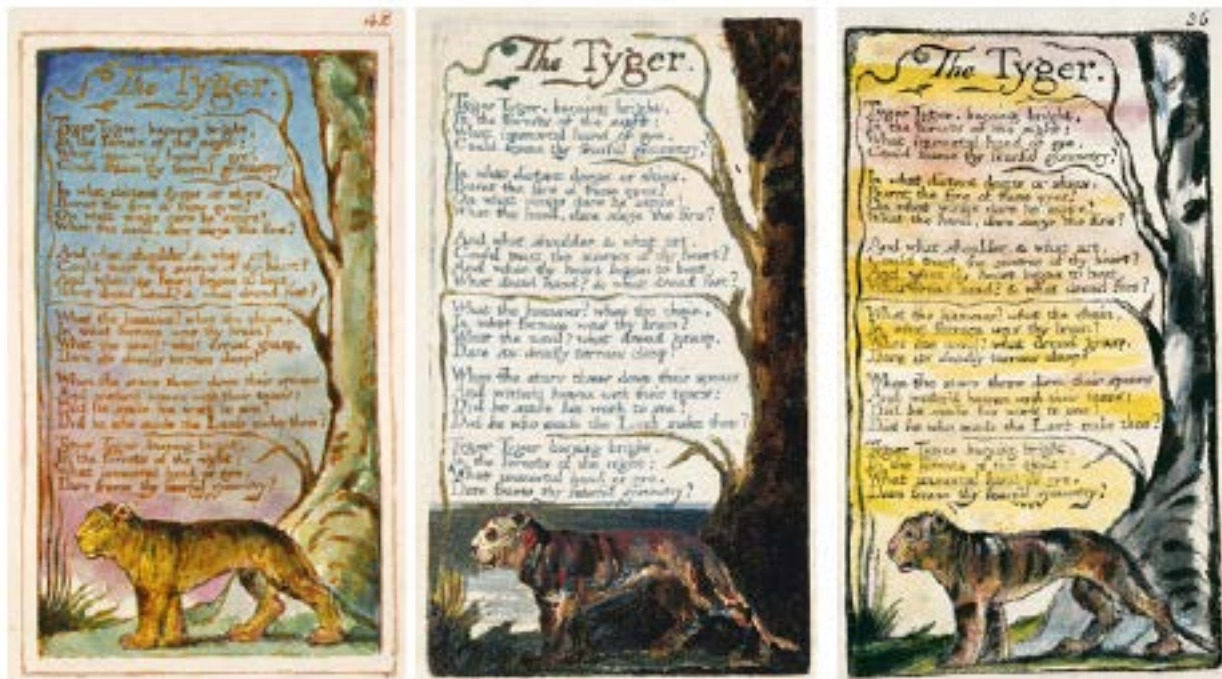 The Tyger.
Tyger Tyger, burning bright,
In the forests of the night:
In what distant deeps or skies.
Burnt the fire of
On what wings dare he aspire?
What the hand, dare sieze the fire?
And what shoulder, & what art,
Could twist the sinews of thy heart?
And when thy heart began to beat,
What the hammer? what the chain,
In what furnace was thy brain?
What the anvil? what dread grasp,
Dare its deadly terrors clasp?
When the stars threw down their spears
And water'd heaven with their tears:
Did he smile his work to see?
Did he who made the Lamb make thee?
Tyger Tyger burning bright,
In the forests of the night:
What immortal hand or eye,
Dare frame thy fearful symmetry?
The Tyger.
Tyger Tyger, burning bright,
In the forests of the night:
What immortal hand or eye,
Could frame thy fearful symmetry?
In what distant deeps or skies,
Burnt the fire of thine eyes?
On what wings dare he aspire?
What the hand, dare sieze the fire?
And what shoulder, & what art,
Could twist the sinews of thy heart?
And when thy heart began to beat,
What dread hand? & what dread feet?
What the hammer? what the chain,
In what furnace was thy brain?
What the anvil? what dread grasp,
Dare its deadly terrors clasp?
When the stars threw down their spears
And water'd heaven with their tears:
Did he smile his work to see?
Did he who made the Lamb make thee?
Tyger Tyger burning bright,
In the forests of the night:
What immortal hand or eye,
Dare frame thy fearful symmetry?
36
The Tyger.
Tyger Tyger, burning bright,
In the forests of the night:
What immortal hand or eye,
Could frame thy fearful symmetry?
In what distant deeps or skies,
Burnt the fire of thine eyes?
On what wings dare he aspire?
What the hand, dare sieze the fire?
And what shoulder, & what art,
Could twist the sinews of thy heart?
And when thy heart began to beat,
What dread hand? & what dread feet?
What the hammer? what the chain,
In what furnace was thy brain?
What the anvil? what dread grasp,
Dare its deadly terrors clasp?
When the stars threw down their spears
And water'd heaven with their tears:
Did he smile his work to see?
Did he who made the Lamb make thee?
Tyger Tyger burning bright,
In the forests of the night:
What immortal hand or eye,
Dare frame thy fearful symmetry?